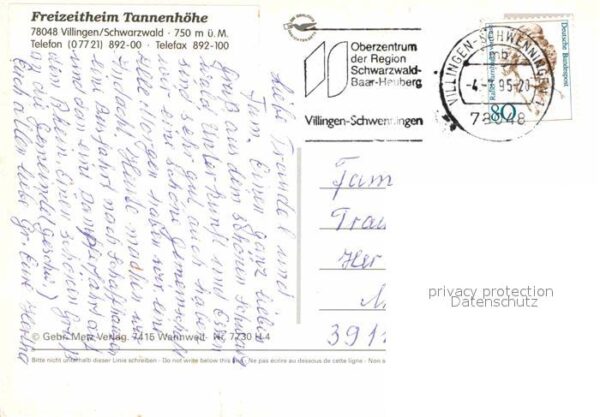 Freizeitheim Tannenhöhe
78048 Villingen/Schwarzwald · 750 m ü. M.
Telefon (07721) 892-00 · Telefax 892-100
Oberzentrum
der Region
Schwarzwald-
Baar-Heuberg
Villingen-Schwenningen
VILLINGEN-SCHWENNINGEN 1
mb
95-20
78048
Deutsche Bundespost
80
Liebe Traudel und
Fam. Einen ganz lieben
Gruß aus dem schönen Schwarzw.
Unterkunft und Essen
ist sehr gut auch haben
wir eine schöne Gemeinschaft
Morgen haben wir ein
Heute machen wir
Busfahrt nach Schaffhausen
und dann eine Dampferfahrt auf
dem Rhein. Einen schönen Gruß
an die Gemeinde
Euch allen liebe Gr. Eure
Fam
Trau
Her
391
privacy protection
Datenschutz
© Gebr. Metz Verlag, 7415 Wannweil Nr. 7730 H 4
Bitte nicht unterhalb dieser Linie schreiben - Do not write below this line - Ne pas écrire au dessous de cette ligne - Non